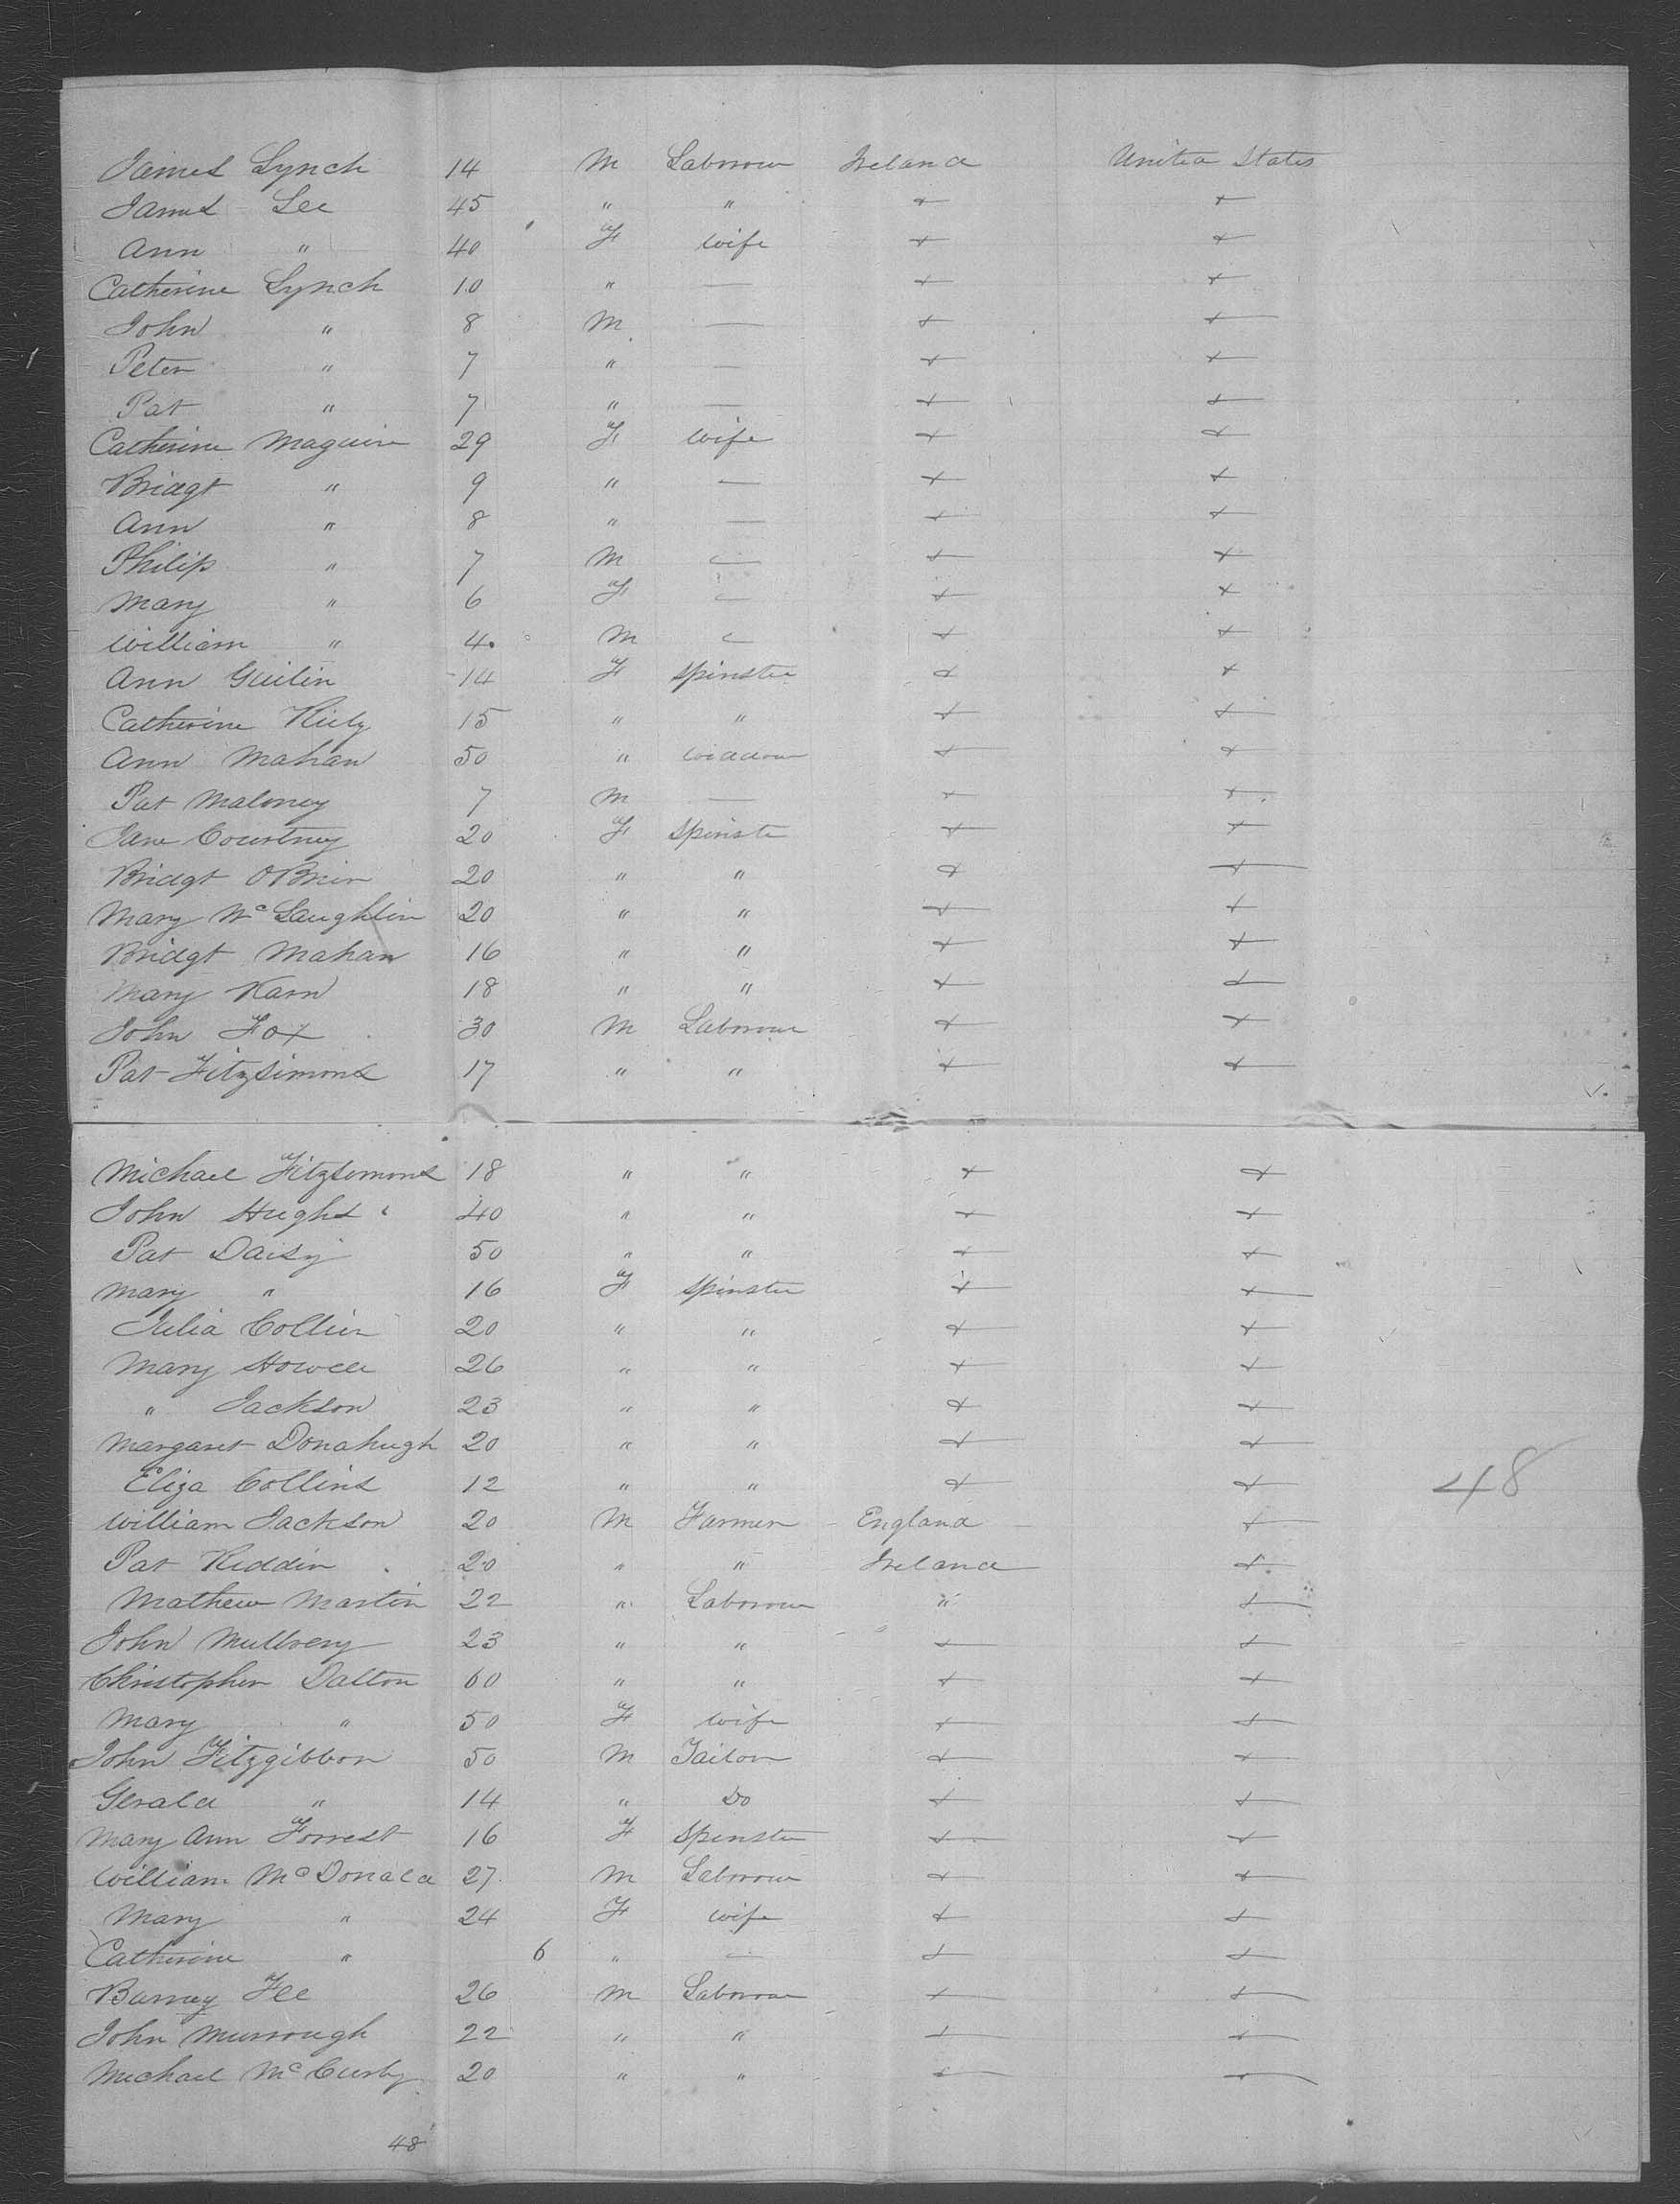 James Lynch 14 M Labrour Ireland United States
James Lee 45 " " + +
Ann " 40 F Wife + +
Catherine Lynch 10 " — + +
John " 8 M — + +
Peter " 7 " — + +
Pat " 7 " — + +
Catherine Maguire 29 F Wife + +
Bridgt " 9 " — + +
Ann " 8 " — + +
Philip " 7 M — + +
Mary " 6 F — + +
William " 4 M — + +
Ann 14 F Spinster + +
Catherine Kiely 15 " " + +
Ann Mahan 50 " Widdow + +
Pat Maloney 7 M — + +
Jane Courtney 20 F Spinste + +
Bridgt OBrien 20 " " + +
Mary Mc Laughlin 20 " " + +
Bridgt Mahan 16 " " + +
Mary Karn 18 " " + +
John Fox 30 M Labrour + +
Pat Fitzsimons 17 " " + +
Michael Fitzsimons 18 " " + +
John Hughs 40 " " + +
Pat Daisy 50 " " + +
Mary " 16 F Spinster + +
Julia Collier 20 " " + +
Mary Howell 26 " " + +
" Jackson 23 " " + +
Margaret Donahugh 20 " " + +
Eliza Collins 12 " " + + 48
William Jackson 20 M Farmer England +
Pat Reddin 20 " " Ireland +
Mathew Martin 22 " Labrour " +
John Mullreny 23 " " + +
Christopher Dalton 60 " " + +
Mary " 50 F Wife + +
John Fitzgibbon 50 M Tailor + +
Gerald " 14 " Do + +
Mary Ann Forrest 16 F Spinster + +
William McDonald 27 M Labrour + +
Mary " 24 F Wife + +
Catherine " 6 " — + +
Barney Fee 26 M Labrour + +
John Murrough 22 " " + +
Michael Mc 20 " " + +
48